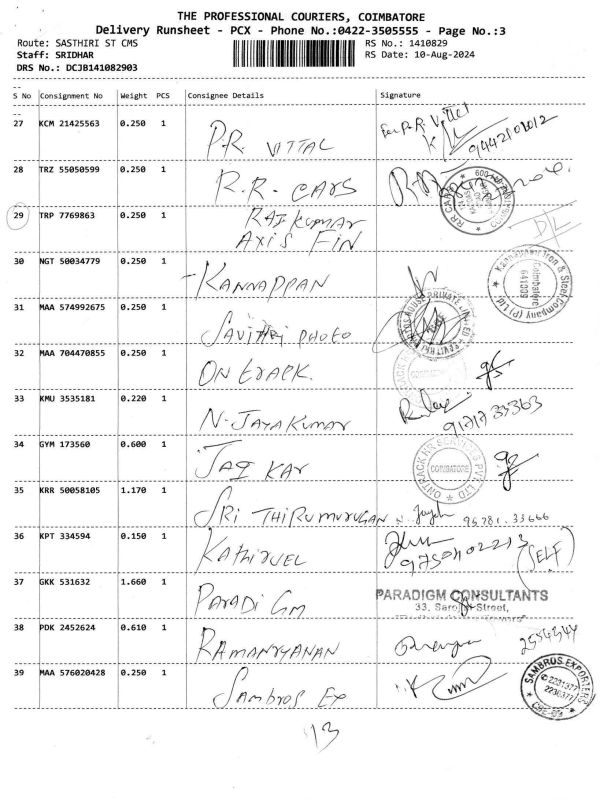 THE PROFESSIONAL COURIERS, COIMBATORE
Delivery Runsheet - PCX - Phone No.:0422-3505555 - Page No.:3
Route: SASTHIRI ST CMS RS No.: 1410829
Staff: SRIDHAR RS Date: 10-Aug-2024
DRS No.: DCJB141082903
S No Consignment No Weight PCS Consignee Details Signature
27 KCM 21425563 0.250 1 P.R. VITTAL For P.R. Vittal
9442101012
28 TRZ 55050599 0.250 1 R.R. CARS
RR CARE
29 TRP 7769863 0.250 1 RAJKUMAR
AXIS FIN
30 NGT 50034779 0.250 1 KANNAPPAN
Iron & Steel Company (P) Ltd.
Coimbatore
641009
31 MAA 574992675 0.250 1 SAVITHRI PHOTO
SAVITHRI PHOTOS HOUSE PRIVATE LIMITED
32 MAA 704470855 0.250 1 ON TRACK.
33 KMU 3535181 0.220 1 N. JAYAKUMAR
34 GYM 173560 0.600 1 JAI KAR
ONTRACK HR SERVICES PVT LTD
COIMBATORE
35 KRR 50058105 1.170 1 SRI THIRUMURUGAN N. 95781.33666
36 KPT 334594 0.150 1 KATHIRVEL 9750402213 (SELF)
37 GKK 531632 1.660 1 PARADIGM PARADIGM CONSULTANTS
33, Saroj Street,
38 PDK 2452624 0.610 1 RAMANYANAN 2554344
39 MAA 576020428 0.250 1 SAMBROS EX
SAMBROS EXPORTERS
2231377
2236377
CBE-09
13